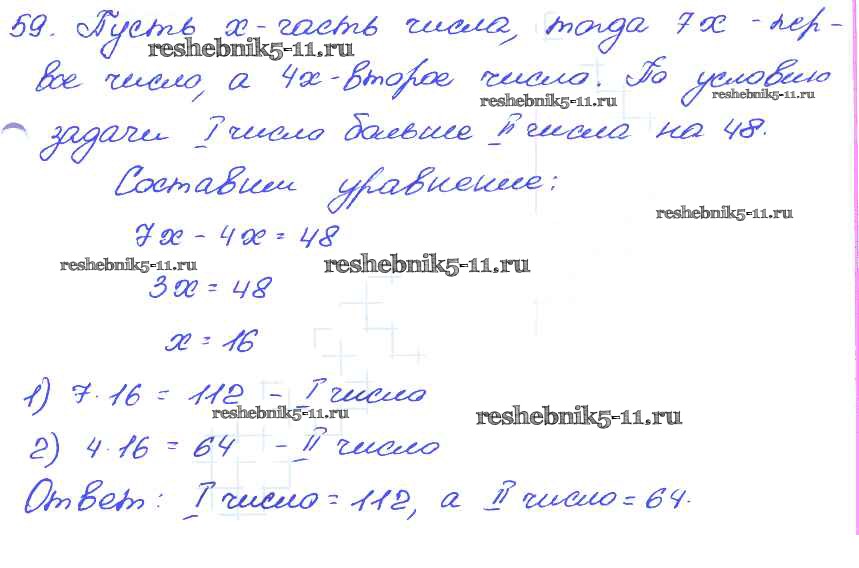 59. Пусть x-часть числа, тогда 7x - пер-
reshebnik5-11.ru
вое число, а 4x-второе число. По условию
reshebnik5-11.ru
reshebnik5-11.ru
задачи I число больше II числа на 48.
Составим уравнение:
reshebnik5-11.ru
7x - 4x = 48
reshebnik5-11.ru
reshebnik5-11.ru
3x = 48
x = 16
1) 7·16 = 112 - I число
reshebnik5-11.ru
reshebnik5-11.ru
2) 4·16 = 64 - II число
Ответ: I число = 112, а II число = 64.